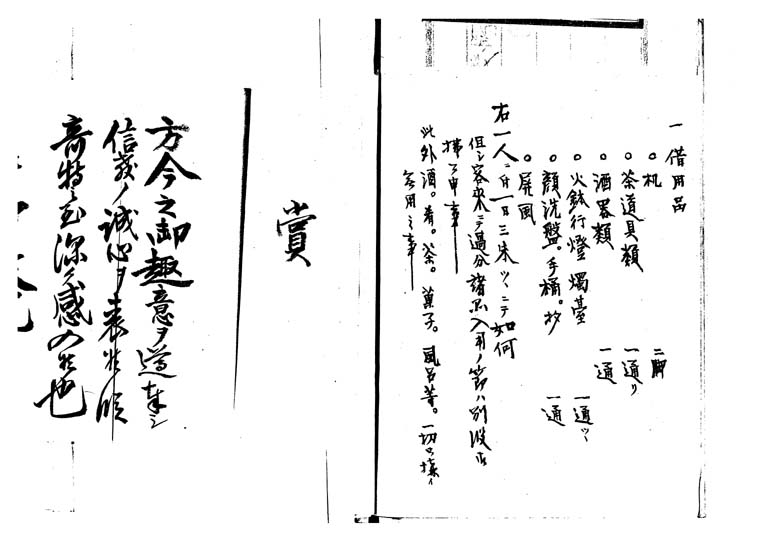 一 借用品
○机 二脚
○茶道具類 一通リ
○酒器類 一通
○火鉢行燈 燭臺 一通ツヽ
○顔洗盤。手桶。杓 一通
○屏風
右一人ニ付一日三朱ツヽニテ如何
但シ客来ニテ過分諸品入用ノ節ハ別段
拂可申事
此外酒。肴。茶。菓子。風呂等。一切
無用之事
賞
方今之御趣意ヲ遵奉シ
信義ノ誠心ヲ表候段
奇特之至深ク感入候也